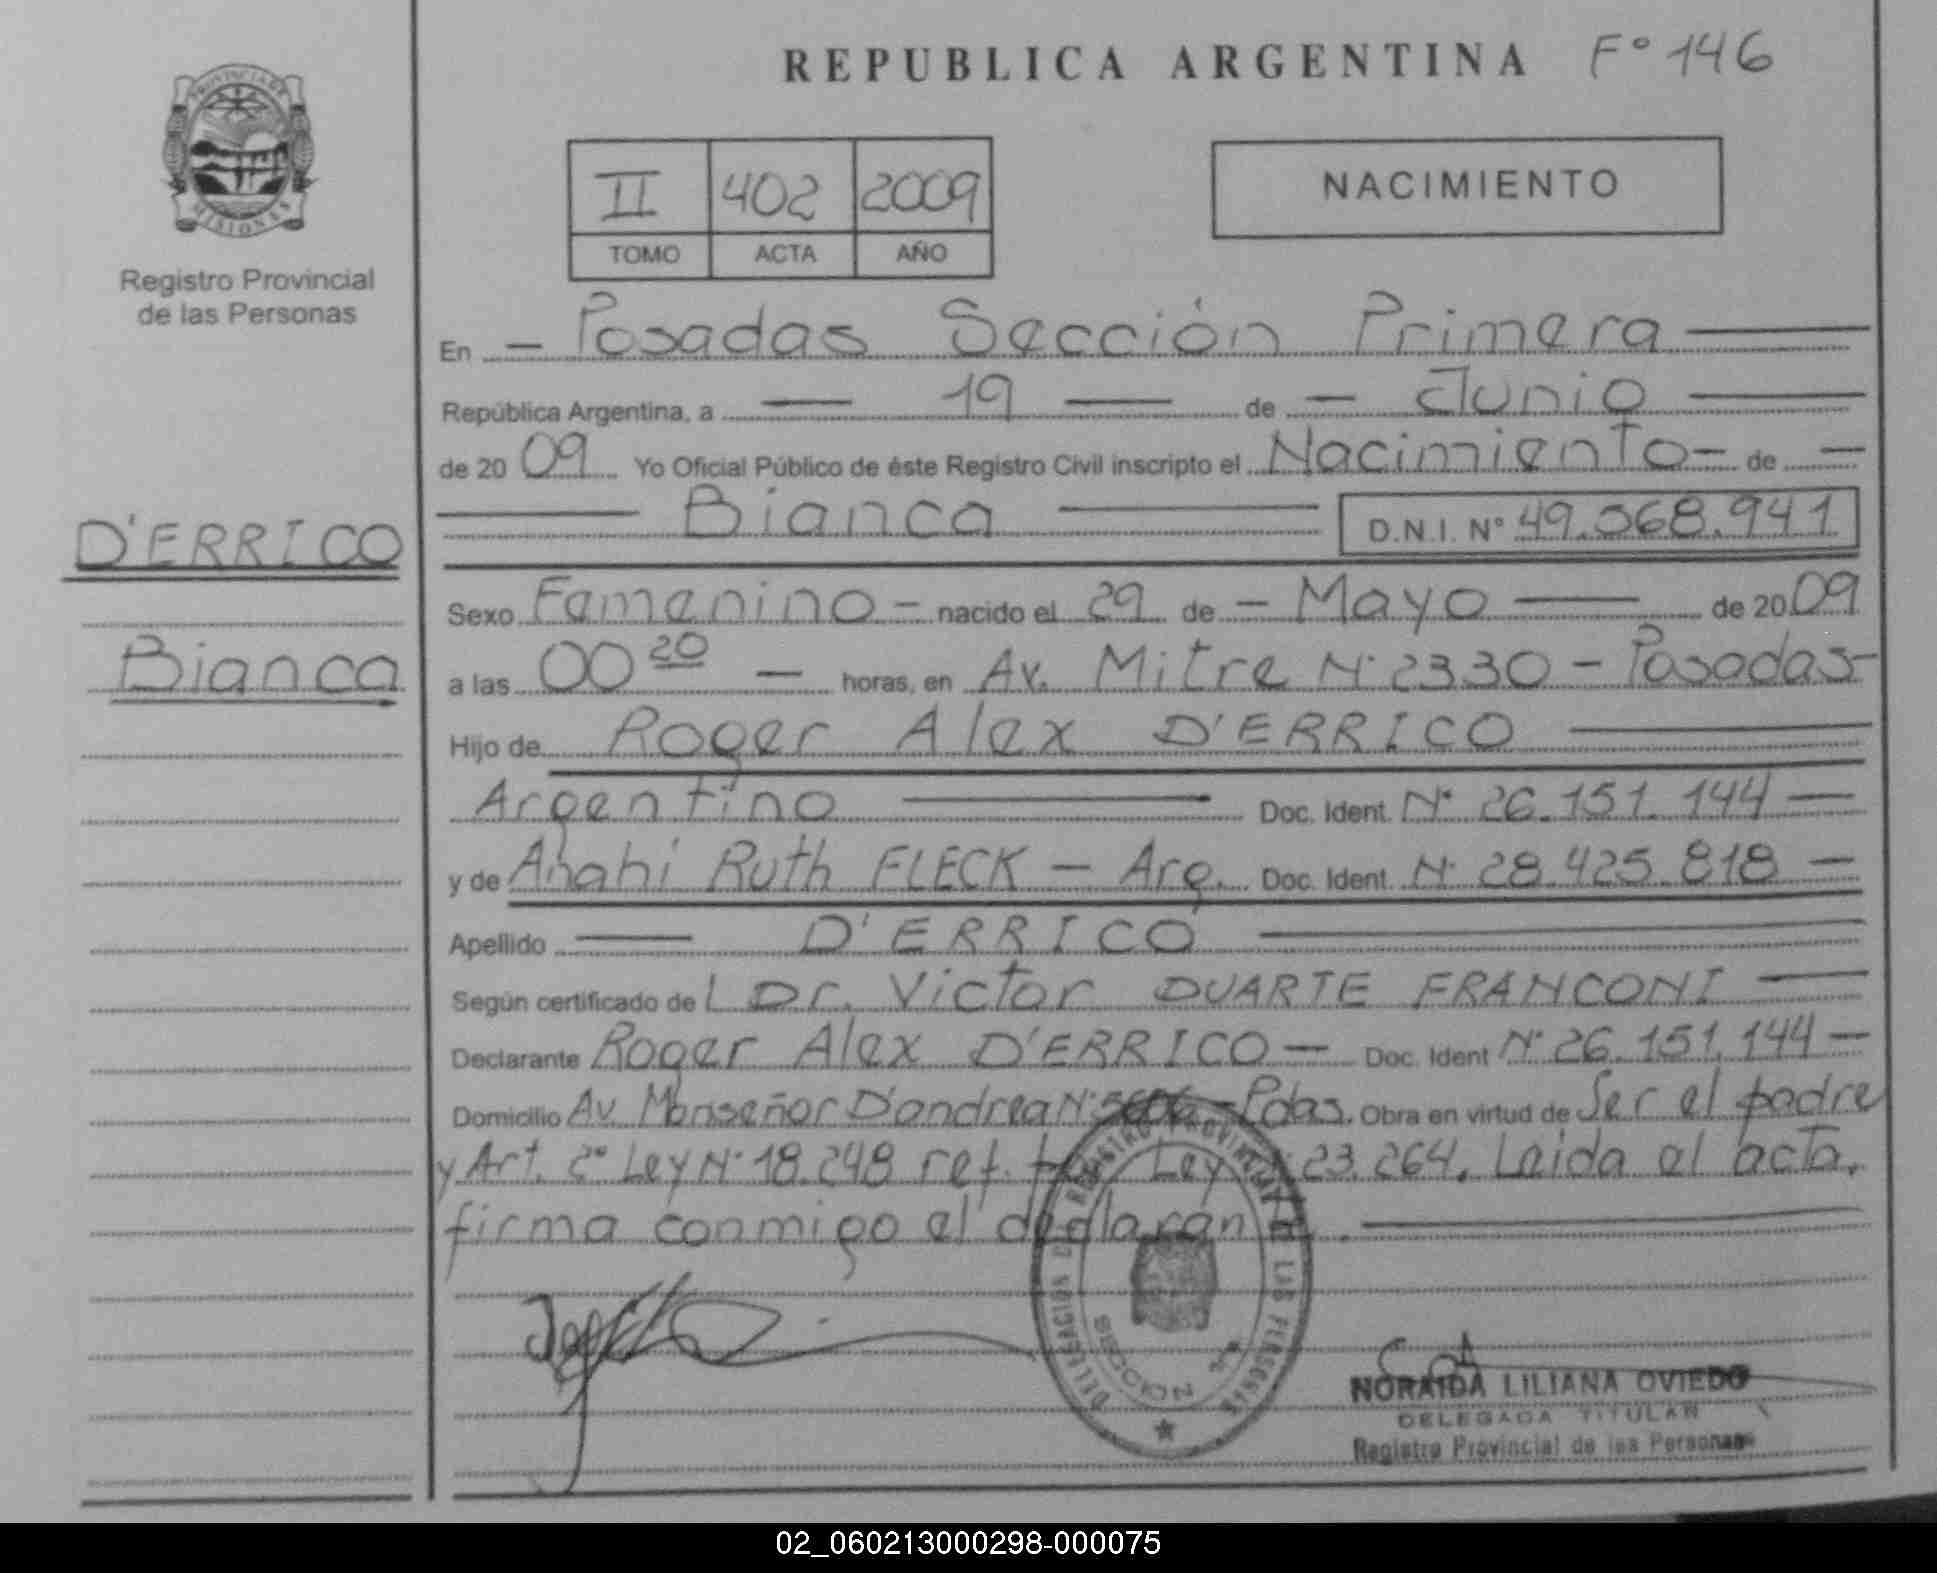 REPUBLICA ARGENTINA F° 146
PROVINCIA DE
MISIONES
Registro Provincial
de las Personas
II 402 2009
TOMO ACTA AÑO
NACIMIENTO
En - Posadas Sección Primera
República Argentina, a 19 de - Junio
de 2009 Yo Oficial Público de éste Registro Civil inscripto el Nacimiento - de -
Bianca D.N.I. N° 49.568.941
D'ERRICO
Bianca
Sexo Femenino - nacido el 29 de - Mayo de 2009
a las 00 20 - horas, en Av. Mitre N° 2330 - Posadas -
Hijo de Roger Alex D'ERRICO
Argentino Doc. Ident. N° 26.151.144
y de Anahi Ruth FLECK - Arg. Doc. Ident. N° 28.425.818
Apellido D'ERRICO
Según certificado de Dr. Victor DUARTE FRANCONI
Declarante Roger Alex D'ERRICO - Doc. Ident N° 26.151.144
Domicilio Av. Monseñor D'andrea N° - Pdas. Obra en virtud de Ser el padre
y Art. 2° Ley N° 18.248 ref. Ley 23.264. Leida el acta,
firma conmigo el declarante.
DELEGACION DEL REGISTRO PROVINCIAL DE LAS PERSONAS
SECCION
NORAIDA LILIANA OVIEDO
DELEGADA TITULAR
Registro Provincial de las Personas
02_060213000298-000075